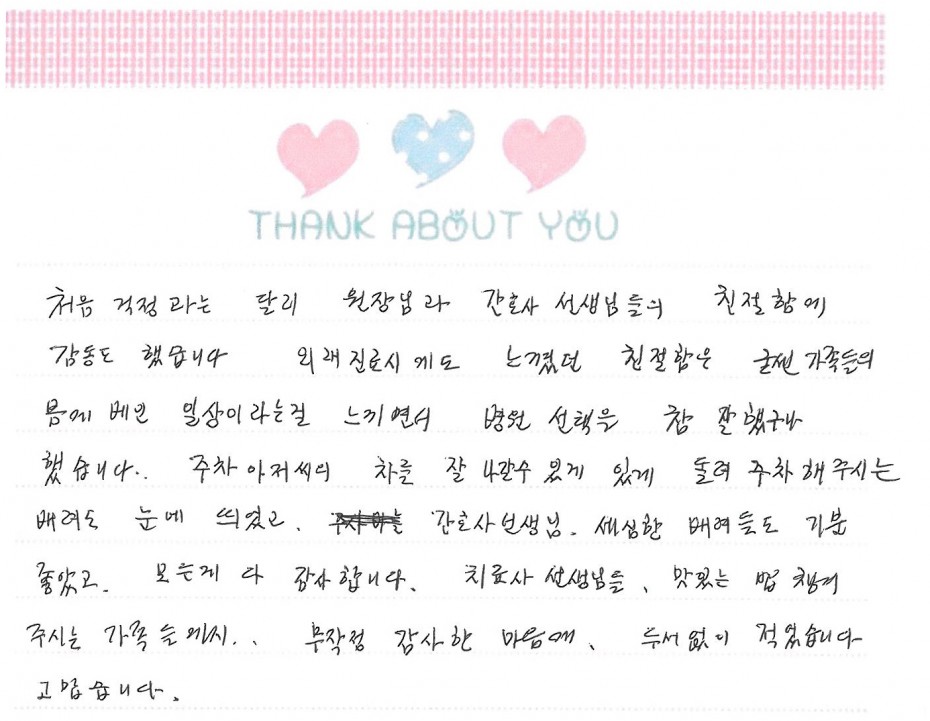 THANK ABOUT YOU
처음 걱정과는 달리 원장님과 간호사 선생님들의 친절함에
감동도 했습니다 외래진료시에도 느꼈던 친절함은 굿센가족들의
몸에 베인 일상이라는걸 느끼면서 병원 선택을 참 잘했구나
했습니다. 주차아저씨의 차를 잘 나갈수 있게 돌려 주차해주시는
배려도 눈에 띄었고. 간호사선생님. 세심한 배려들도 기분
좋았고. 모든게 다 감사합니다. 치료사 선생님들, 맛있는 밥 챙겨
주시는 가족들께서.. 무작정 감사한 마음에, 두서없이 적었습니다
고맙습니다.